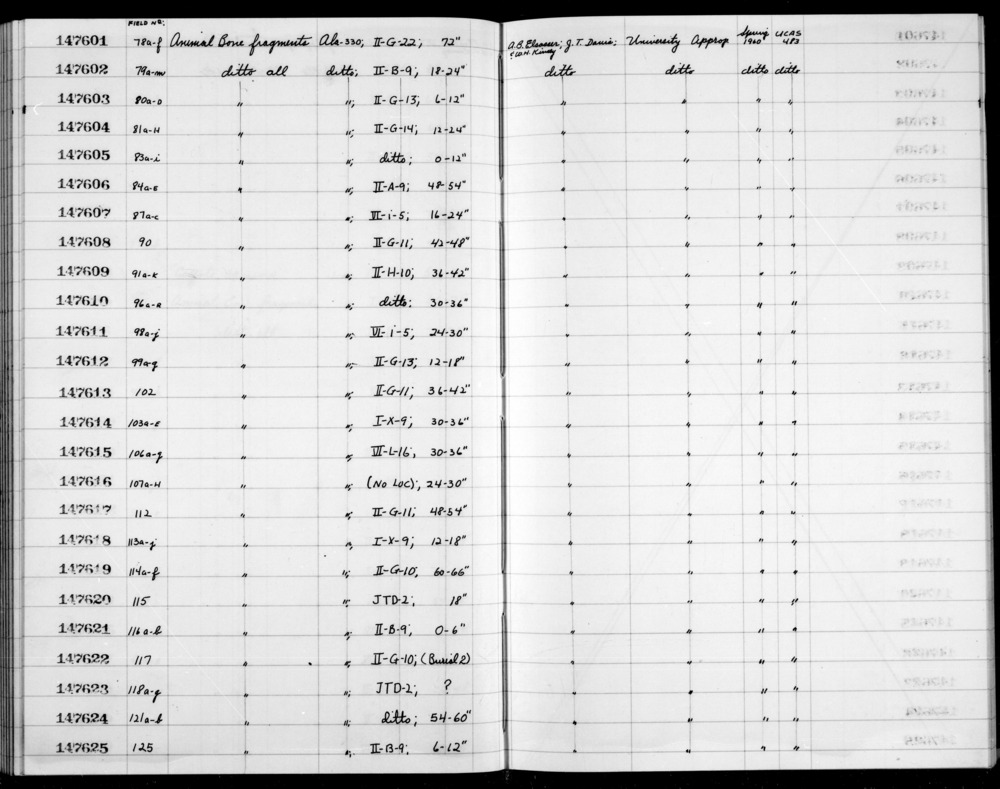 FIELD NO:
147601 78a-f Animal Bone fragments Ala-330; II-G-22; 72" A.B. Elsasser; J.T. Davis; & W.H. Kinsey University Approp Spring 1960 UCAS 483
147602 79a-m ditto all ditto; II-B-9; 18-24" ditto ditto ditto ditto
147603 80a-o " "; II-G-13; 6-12" " " " "
147604 81a-H " "; II-G-14; 12-24" " " " "
147605 83a-i " "; ditto; 0-12" " " " "
147606 84a-E " "; II-A-9; 48-54" " " " "
147607 87a-c " "; VI-i-5; 16-24" " " " "
147608 90 " "; II-G-11; 42-48" " " " "
147609 91a-K " "; II-H-10; 36-42" " " " "
147610 96a-a " "; ditto; 30-36" " " " "
147611 98a-j " "; VI-i-5; 24-30" " " " "
147612 99a-g " "; II-G-13; 12-18" " " " "
147613 102 " "; II-G-11; 36-42" " " " "
147614 103a-E " "; I-X-9; 30-36" " " " "
147615 106a-g " "; VII-L-16; 30-36" " " " "
147616 107a-H " "; (NO LOC); 24-30" " " " "
147617 112 " "; II-G-11; 48-54" " " " "
147618 113a-j " "; I-X-9; 12-18" " " " "
147619 114a-f " "; II-G-10; 60-66" " " " "
147620 115 " "; JTD-2; 18" " " " "
147621 116a-b " "; II-B-9; 0-6" " " " "
147622 117 " "; II-G-10; (Burial 2) " " " "
147623 118a-g " "; JTD-2; ? " " " "
147624 121a-b " "; ditto; 54-60" " " " "
147625 125 " "; II-B-9; 6-12" " " " "